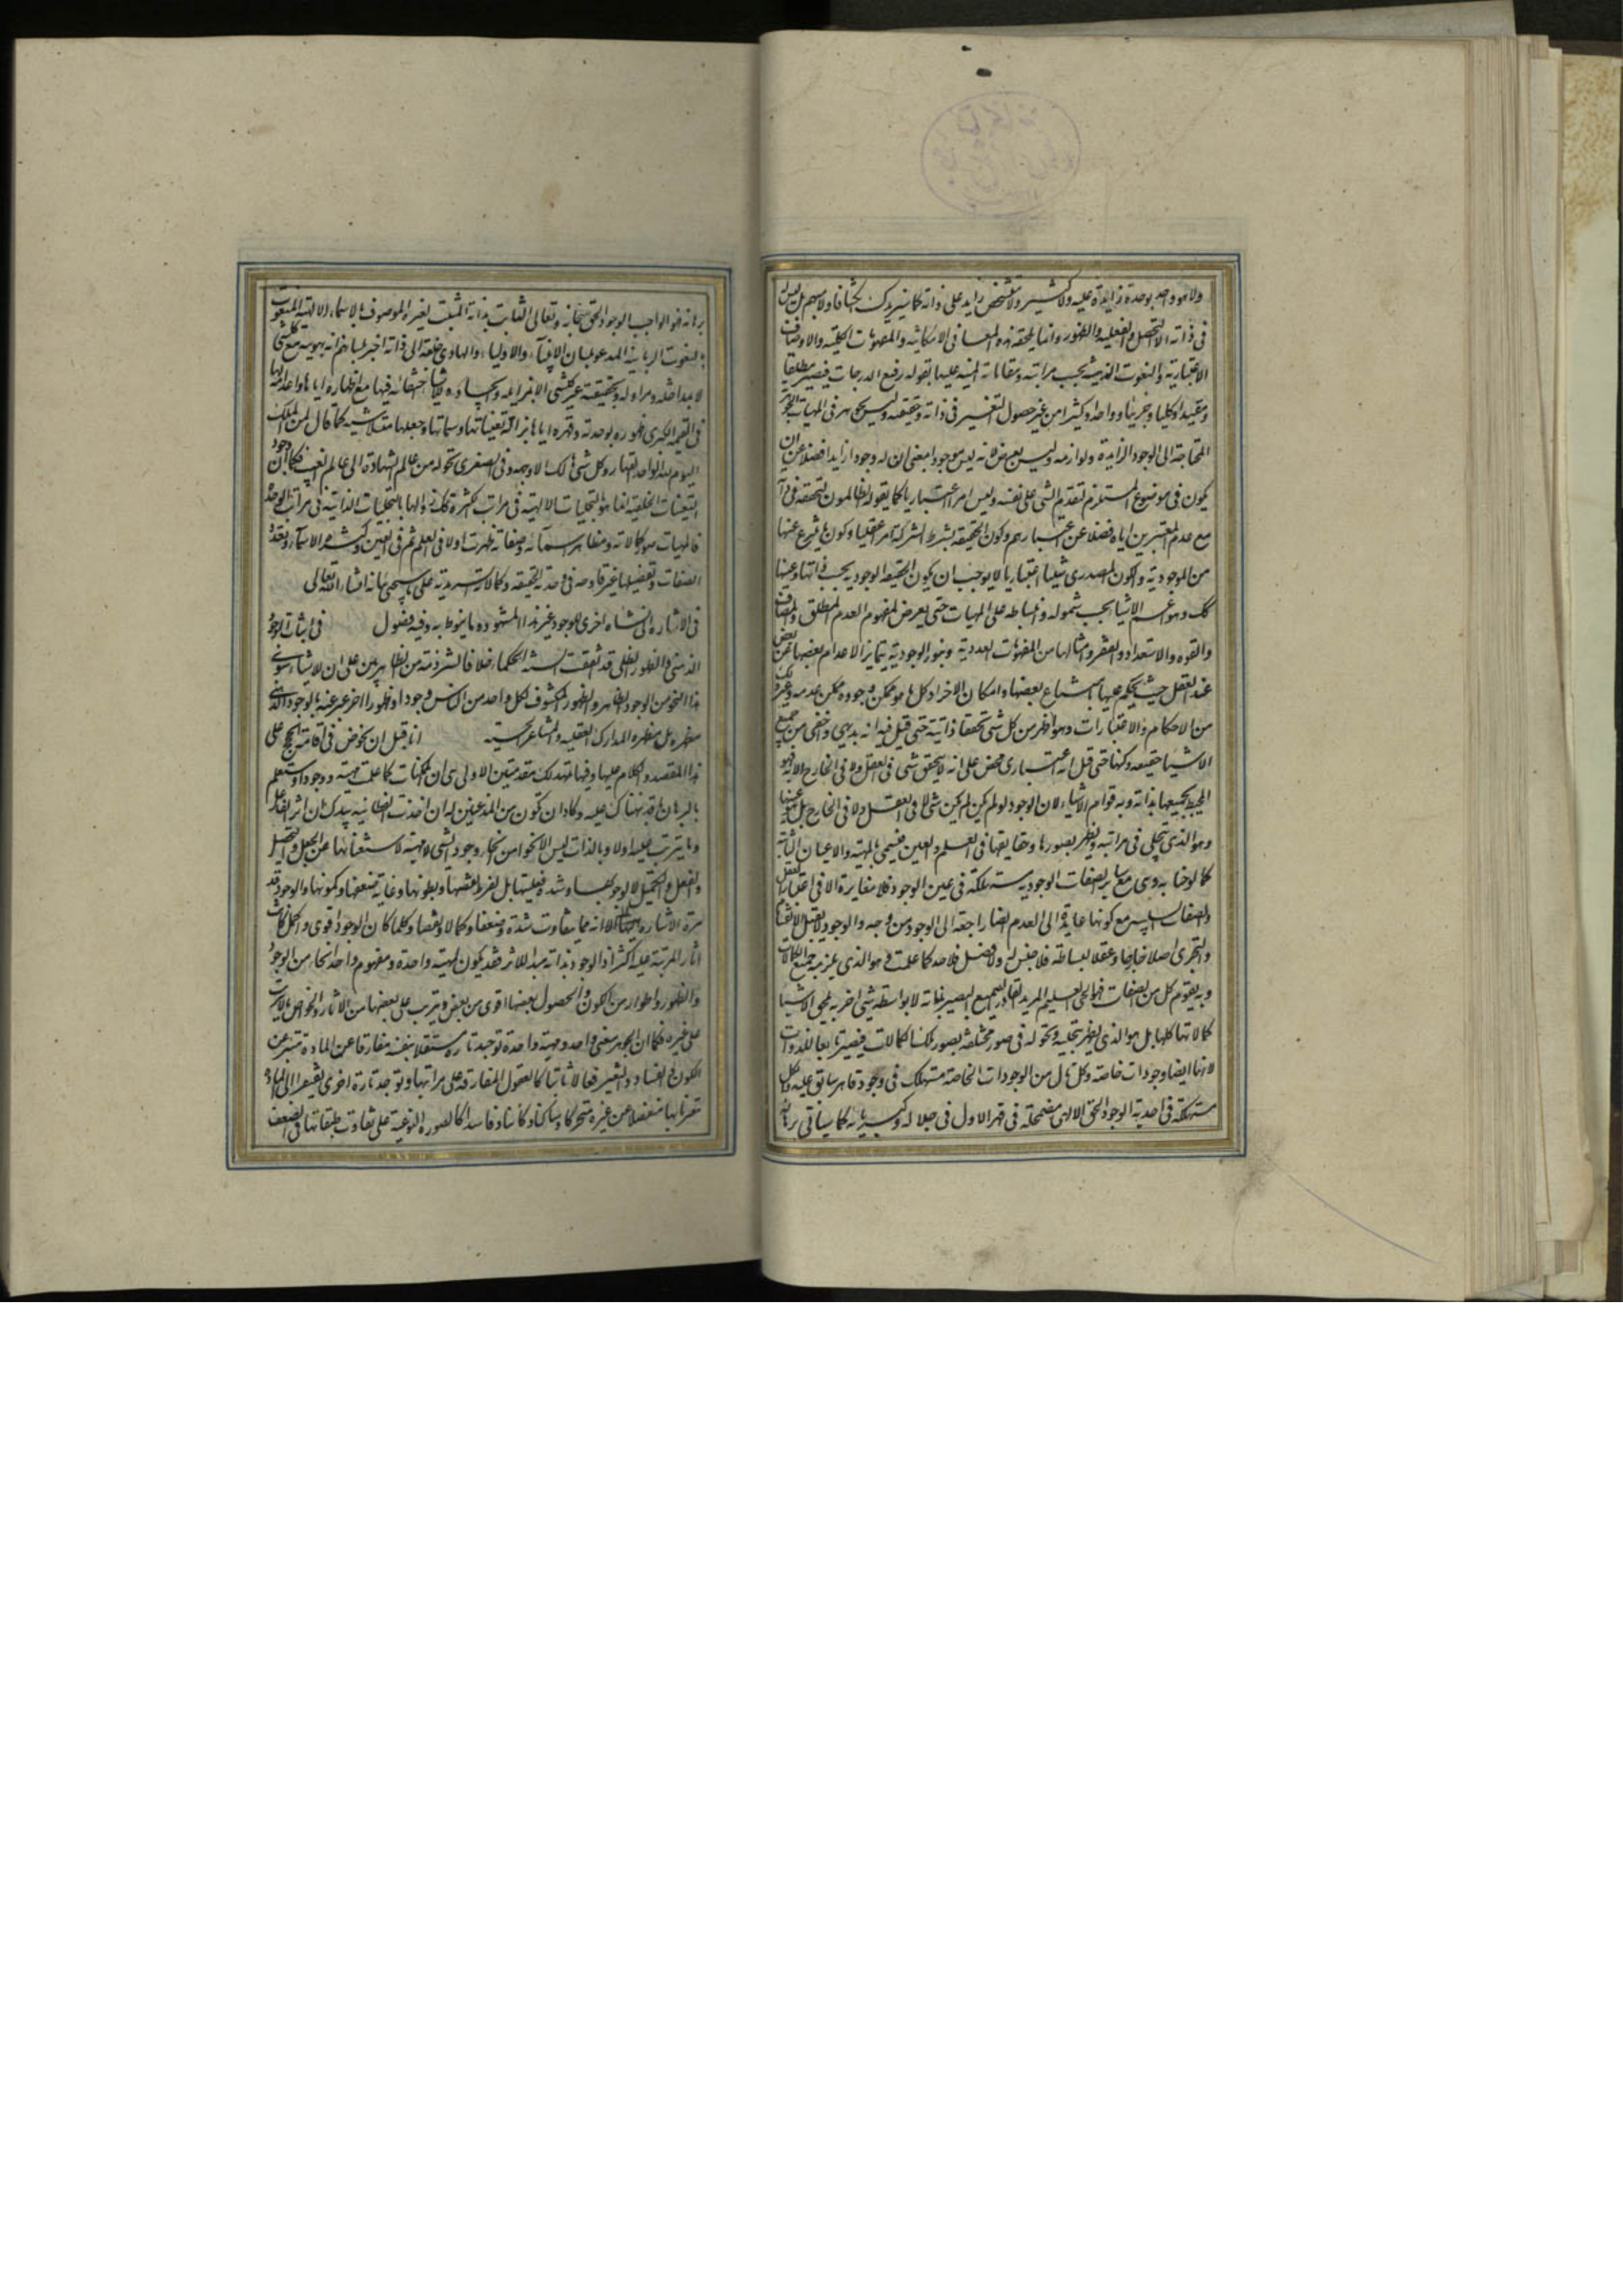 ولا هو واحد بوحدة زايدة عليه ولا كثير ولا متشخص بتشخص زايد على ذاته كما سنزيدك انكشافا ولا مبهم بل ليس له
فى ذاته الا التحصل والفعلية والظهور وانما يلحقه هذه المعانى الامكانية والمفهومات الكلية والاوصاف
الاعتبارية والنعوت الذهنية بحسب مراتبه ومقاماته المنبه عليها بقوله رفيع الدرجات فيصير مطلقا
ومقيدا وكليا وجزئيا وواحدا وكثيرا من غير حصول التغير فى ذاته وحقيقته وليس بجوهر فى المهيات الجوهرية
المحتاجة الى الوجود الزايدة ولوازمه وليس بعرض لانه ليس موجودا بمعنى ان له وجودا زايدا فضلا عن ان
يكون فى موضوع المستلزم لتقدم الشى على نفسه وليس امرا اعتباريا كما يقوله الظالمون لتحققه فى ذاته
مع عدم المعتبرين اياه فضلا عن اعتبارهم وكون الحقيقة بشرط الشركة امرا عقليا وكون ما ينتزع عنها
من الموجودية والكون المصدرى شيئا اعتباريا لا يوجب ان يكون الحقيقة الوجودية بحسب ذاتها وعينها
كك وهو اعم الاشيا بحسب شموله وانبساطه على المهيات حتى يعرض لمفهوم العدم المطلق والمضاف
والقوه والاستعداد والفقر وامثالها من المفهومات العدمية وبنور الوجود يتمايز الاعدام بعضها عن بعض
عند العقل حيث يحكم عليها بامتناع بعضها وامكان الاخر اذ كل ما هو ممكن وجوده ممكن عدمه وغير ذلك
من الاحكام والاعتبارات وهو اظهر من كل شى تحققا وانية حتى قيل فيه انه بديهى واخفى من جميع
الاشيا حقيقه وكنها حتى قيل انه اعتبارى محض على انه لا يتحقق شى فى العقل ولا فى الخارج الا به فهو
المحيط بجميعها بذاته وبه قوام الاشياء لان الوجود لو لم يكن لم يكن شى لا فى العقل ولا فى الخارج بل هو عينها
وهو الذى يتجلى فى مراتبه ويظهر بصورها وحقايقها فى العلم والعين فيسمى بالمهية والاعيان الثابتة
كما لوحنا به وهى مع ساير الصفات الوجودية مستهلكة فى عين الوجود فلا مغايرة الا فى اعتبار العقل
والصفات السلبية مع كونها عايدة الى العدم ايضا راجعة الى الوجود من وجه والوجود لا يقبل الانقسام
والتجزى اصلا خارجا وعقلا لبساطته فلا جنس له ولا فصل فلا حد له كما علمت وهو الذى يلزمه جميع الكمالات
وبه يقوم كل من الصفات فهو الحى العليم المريد القادر السميع البصير بذاته لا بواسطة شى اخر به يلحق الاشيا
كمالاتها كلها بل هو الذى يظهر بتجليه وتحوله فى صور مختلفة بصور تلك الكمالات فيصير تابعا للذوات
لانها ايضا وجودات خاصة وكل تال من الوجودات الخاصة مستهلك فى وجود قاهر سابق عليه والكل
مستهلكة فى احدية الوجود الحق الالهى مضمحلة فى قهر الاول فى جلاله وكبريائه كما سياتى برهانه
برهانه فهو الواجب الوجود الحق سبحانه وتعالى الثابت بذاته المثبت لغيره الموصوف بالاسماء الالهية المنعوت
بالنعوت الربانية المدعو بلسان الانبياء والاولياء الهادى خلقه الى ذاته اخبر بلسانهم انه بهويته مع كل شى
لا بمداخلة ومزاولة وبحقيقته غير كل شى لا بمزايلة وايجاده للاشيا اختفائه فيها مع اظهاره اياها واعدامه لها
فى القيمة الكبرى ظهوره بوحدته وقهره اياها بازالة تعيناتها وسماتها وجعلها متلاشية كما قال لمن الملك
اليوم لله الواحد القهار وكل شى هالك الا وجهه وفى الصغرى تحوله من عالم الشهادة الى عالم الغيب فكما ان وجود
التعينات الخلقية انما هو بالتجليات الالهية فى مراتب الكثرة كذلك زوالها بالتجليات الذاتية فى مراتب الوحدة
فالمهيات صور كمالاته ومظاهر اسمائه وصفاته ظهرت اولا فى العلم ثم فى العين وكثرة الاسماء وتعدد
الصفات وتفصيلها غير قادحة فى وحدته الحقيقية وكمالاته السرمدية على ما سيجئ بيانه انشاء الله تعالى
فى الاشاره الى نشاه اخرى للوجود غير هذا المشهود وما ينوط به وفيه فصول فى اثبات الوجود
الذهنى والظهور الظلى قد اتفقت السنة الحكماء خلافا لشرذمة من الظاهريين على ان للاشياء سوى
هذا النحو من الوجود الظاهر والظهور المكشوف لكل واحد من الناس وجودا او ظهورا اخر عبر عنه بالوجود الذهنى
مظهره بل مظهره المدارك العقليه والمشاعر الحسية انا قبل ان نخوض فى اقامة الحجج على
هذا المقصد والكلام عليها وفيها نمهد لك مقدمتين الاولى هى ان للممكنات كما علمت مهية ووجودا وستعلم
بالبرهان ما قد نبهناك عليه وكاد ان تكون من المذعنين له ان اخذت الفطانة بيدك ان اثر الفاعل
وما يترتب عليه اولا وبالذات ليس الا نحوا من انحاء وجود الشى لا مهيته لاستغنائها عن الجعل والتحصيل
والفعل والتكميل لا لوجوبها وشدة فعليتها بل لفرط نقصها وبطونها وغاية ضعفها وكمونها والوجود قد
مرت الاشاره الى انه مما يتفاوت شدة وضعفا وكمالا ونقصا وكلما كان الوجود اقوى واكمل كانت
اثار المرتبة عليه اكثر اذ الوجود بذاته مبدا للاثر فقد يكون لمهية واحدة ومفهوم واحد انحاء من الوجود
والظهور واطوار من الكون والحصول بعضها اقوى من بعض ويترتب على بعضها من الاثار والخواص ما لا يترتب
على غيره فكما ان الجوهر معنى واحد ومهية واحدة توجد تارة مستقلا بنفسه مفارقا عن المادة متبريا عن
الكون والفساد والتغير فعالا ثابتا كالعقول المفارقة على مراتبها وتوجد تارة اخرى مفتقرا الى المادة
مقترنا بها منفعلا عن غيره متحركا وساكنا وكائنا وفاسدا كالصوره النوعية على تفاوت طبقاتها فى الضعف